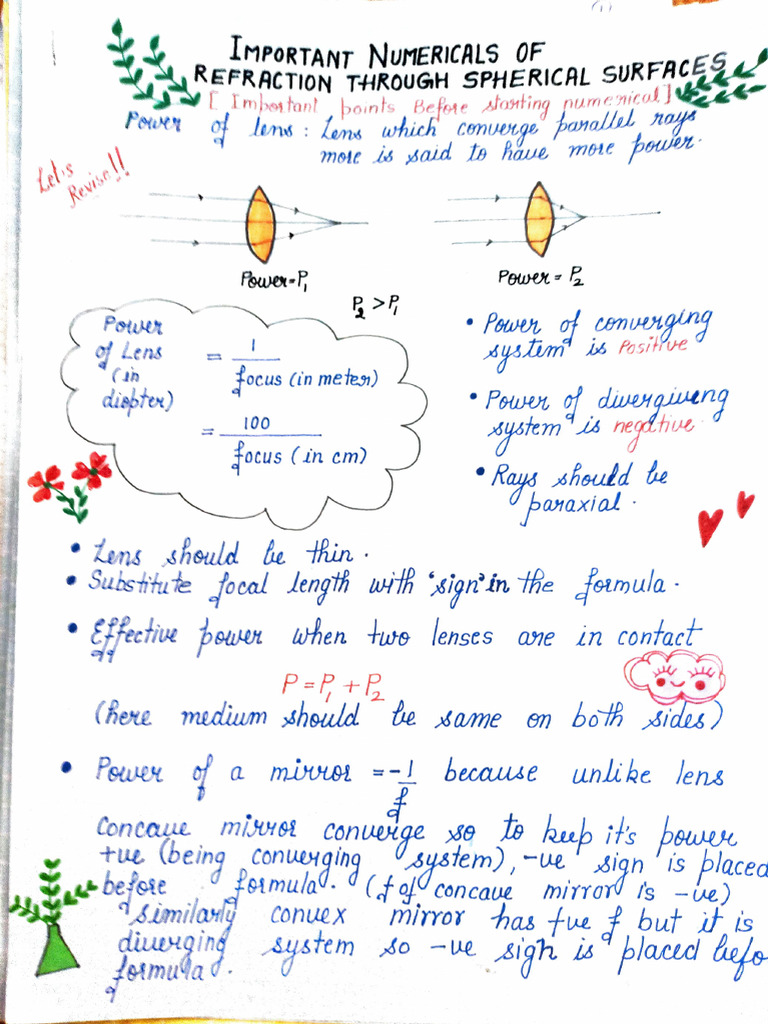 IMPORTANT NUMERICALS OF
REFRACTION THROUGH SPHERICAL SURFACES
[Important points Before starting numerical]
Power of lens : Lens which converge parallel rays
more is said to have more power.
Let's
Revise!!
Power=P₁
Power = P₂
P₂ > P₁
Power
of Lens
(in
diopter)
= 1
focus (in meter)
= 100
focus (in cm)
• Power of converging
system is Positive
• Power of divergiveng
system is negative
• Rays should be
paraxial.
• Lens should be thin.
• Substitute focal length with 'sign' in the formula.
• Effective power when two lenses are in contact
P = P₁ + P₂
(here medium should be same on both sides)
• Power of a mirror = -1/f because unlike lens
concave mirror converge so to keep it's power
+ve (being converging system), -ve sign is placed
before formula. (f of concave mirror is -ve)
similarly convex mirror has +ve f but it is
diverging system so -ve sigh is placed befo
formula.